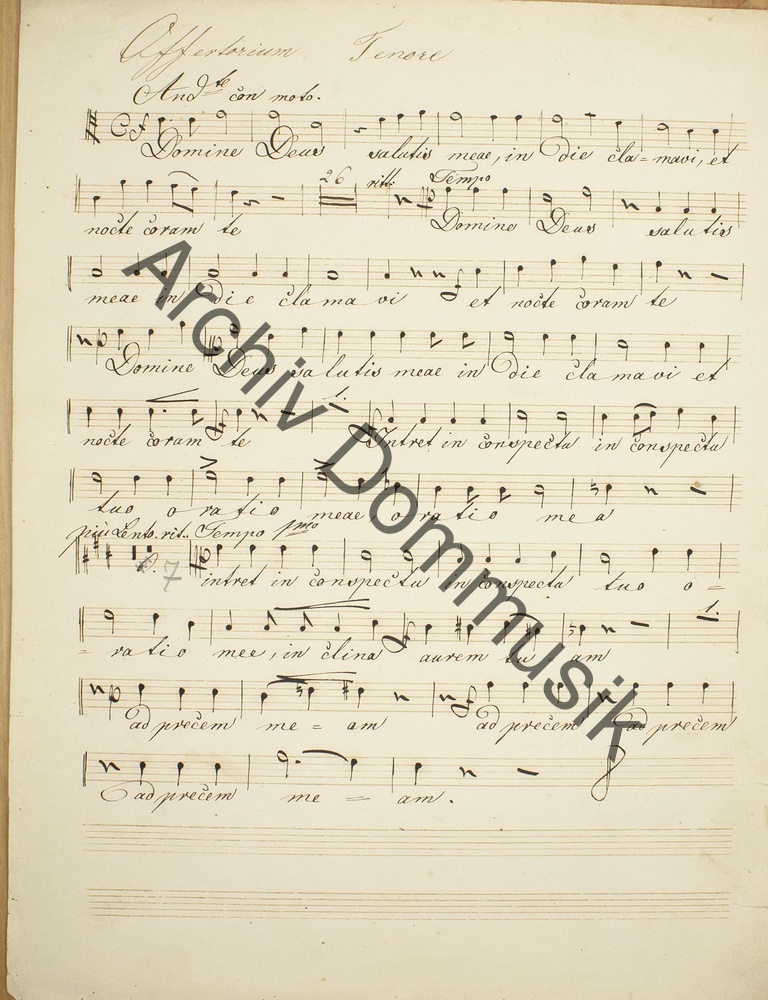 Offertorium Tenore
And.te con moto.
Domine Deus salutis meae, in die cla=mavi, et
26 rit. Tempo
nocte coram te Domine Deus salutis
meae in die clamavi et nocte coram te
Domine Deus salutis meae in die clamavi et
1.
nocte coram te Intret in conspectu in conspectu
tuo oratio meae, oratio mea
più Lento. rit. Tempo pmo
7
intret in conspectu in conspectu tuo o=
1.
=ratio mee, in clina aurem tu=am
ad precem me=am ad precem ad precem
ad precem me=am.
Archiv Dommusik